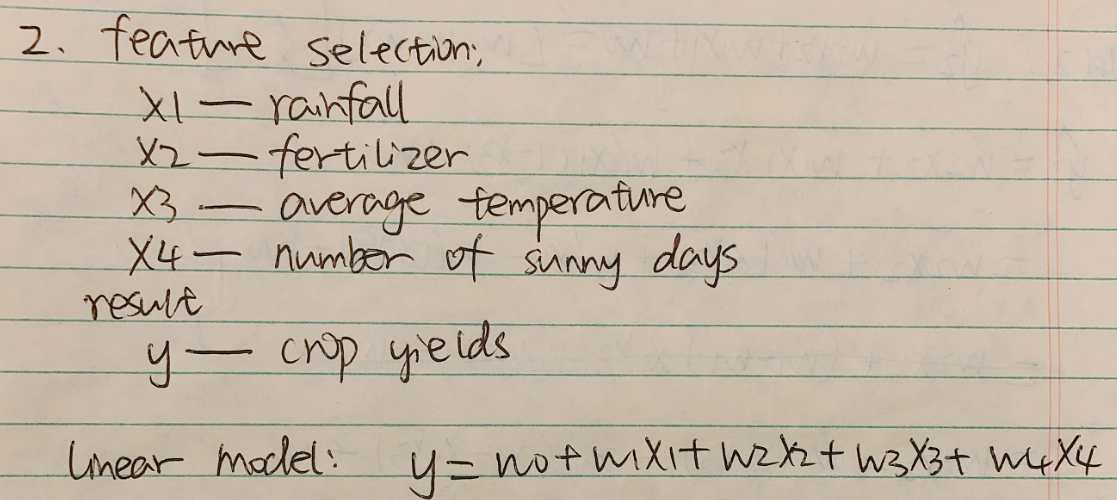 2. feature selection:
x1 — rainfall
x2 — fertilizer
x3 — average temperature
x4 — number of sunny days
result
y — crop yields
linear model: y = w0 + w1x1 + w2x2 + w3x3 + w4x4